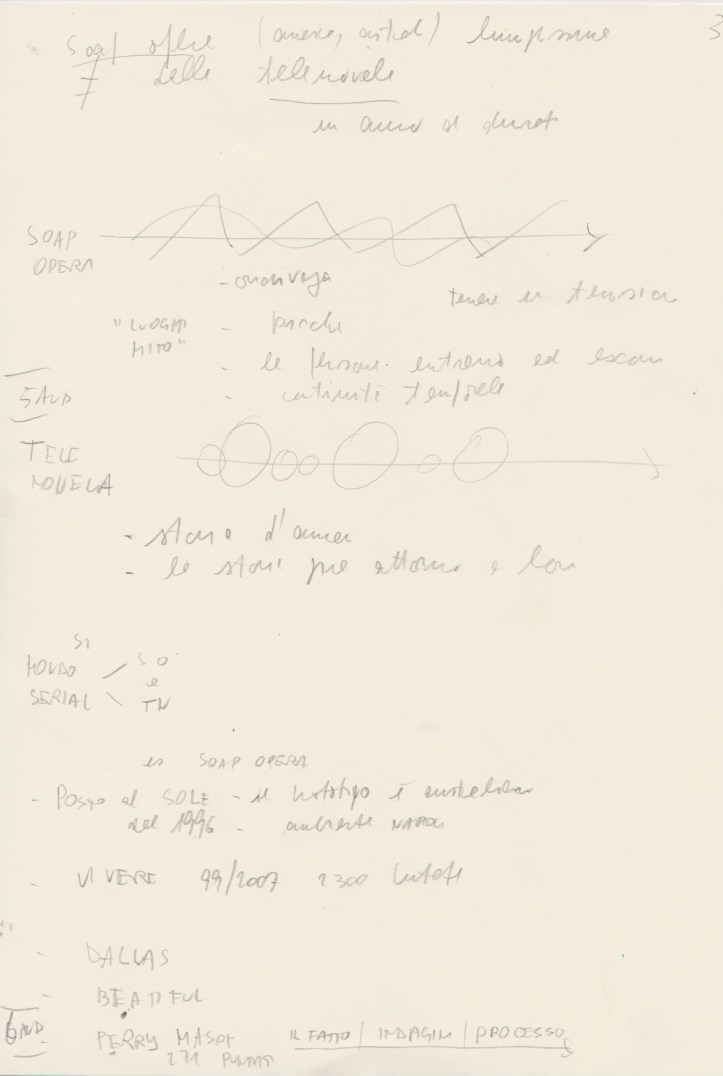 3
Soap opere (americ, austral) lunghissime
≠ dalle telenovele
un anno di durata
SOAP
OPERA
tenere in tensione
"LUOGHI
MITO"
- pochi
- le person. entrano ed escon
- continuità temporale
5 AUD
TELE
NOVELA
- storie d'amore
- le storie attorno a loro
SI
MONDO
SERIAL
SO
e
TN
es SOAP OPERA
- Posto al SOLE - il prototipo è australiano
del 1996 - ambiente NAPOLI
- VIVERE 99/2007 2300 puntate
- DALLAS
- BEATIFUL
6 AUD
PERRY MASON IL FATTO | INDAGINI | PROCESSO
271 PUNTATE